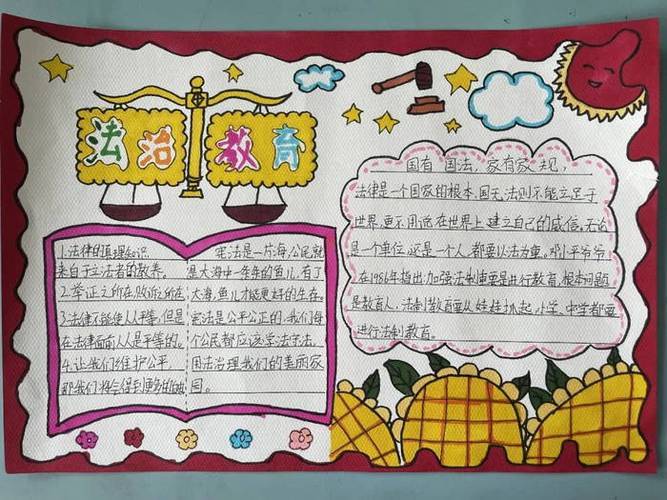 法治教育
1.法律的真理知识
来自于立法者的教养。
2.举证之所在,败诉之所在
3.法律不能使人人平等,但是
在法律面前人人是平等的。
4.让我们维护公平,
那我们将会得到更多的自由
宪法是一片海,公民就
是大海中一条条的鱼儿,有了
大海,鱼儿才能更好的生存。
宪法是公平公正的,我们每
个公民都应该学法守法。
用法治理我们的美丽家
园。
国有国法,家有家规,
法律是一个国家的根本,国无法则不能立足于
世界,更不用说在世界上建立自己的威信,无论
是一个单位,还是一个人,都要以法为重。邓小平爷爷
在1986年指出:加强法制重要是进行教育,根本问题
是教育人。法制教育要从娃娃抓起,小学、中学都要
进行法制教育。